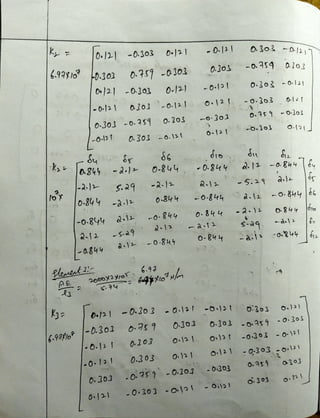 K₂ =
0.121 -0.303 0.121 -0.121 0.303 -0.121
6.97×10⁷ -0.303 0.759 -0.303 0.303 -0.759 0.303
0.121 -0.303 0.121 -0.121 0.303 -0.121
-0.121 0.303 -0.121 0.121 -0.303 0.121
0.303 -0.759 0.303 -0.303 0.759 -0.303
-0.121 0.303 -0.121 0.121 -0.303 0.121
δ4 δ5 δ6 δ10 δ11 δ12
K₂= 0.844 -2.12 0.844 -0.844 2.12 -0.844 δ4
10⁷× -2.12 5.29 -2.12 2.12 -5.29 2.12 δ5
0.844 -2.12 0.844 -0.844 2.12 -0.844 δ6
-0.844 2.12 -0.844 0.844 -2.12 0.844 δ10
2.12 -5.29 2.12 -2.12 5.29 -2.12
-0.844 2.12 -0.844 0.844 -2.12 0.844 δ12
Element 3:-
AE/l₃ = 2000×2×10⁵/5.74 = 6.97 ×10⁷ N/m
K₃=
0.121 -0.303 -0.121 -0.121 0.303 0.121
6.97×10⁷ -0.303 0.759 0.303 0.303 -0.759 -0.303
-0.121 0.303 0.121 0.121 -0.303 -0.121
-0.121 0.303 0.121 0.121 -0.303 -0.121
0.303 -0.759 -0.303 -0.303 0.759 0.303
0.121 -0.303 -0.121 -0.121 0.303 0.121